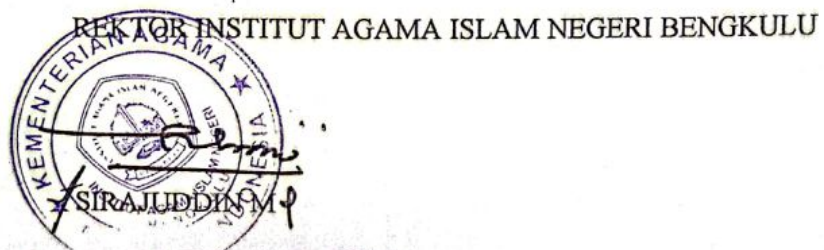 REKTOR INSTITUT AGAMA ISLAM NEGERI BENGKULU
KEMENTERIAN AGAMA
INSTITUT AGAMA ISLAM NEGERI
SIRAJUDDIN M